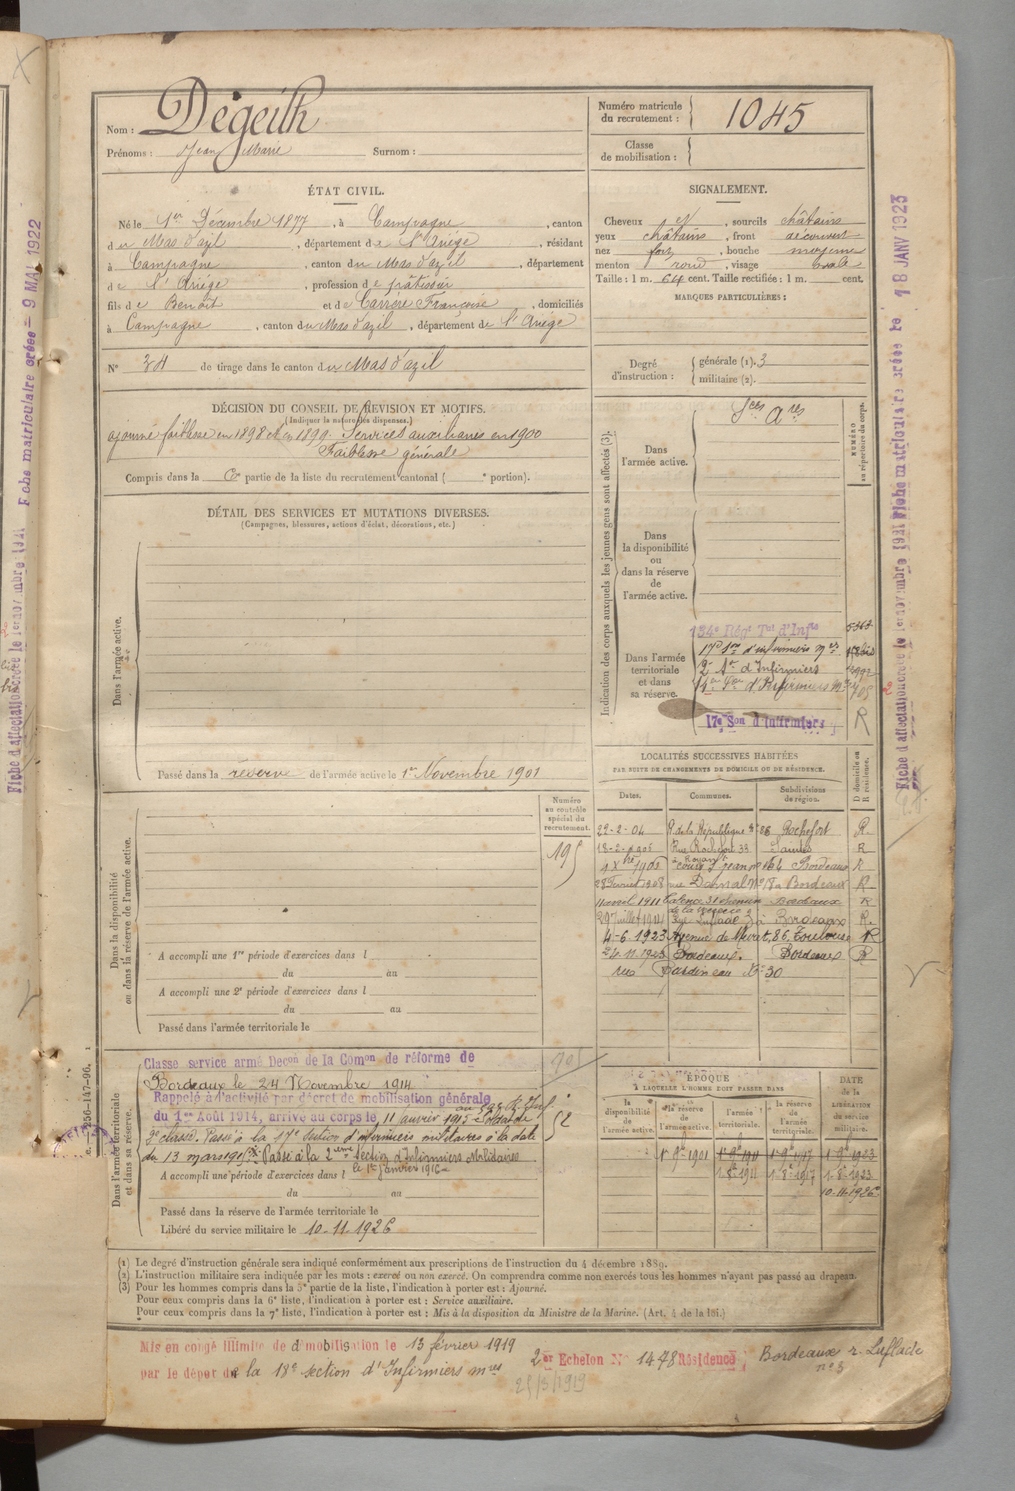 Nom : Dégeilh
Prénoms : Jean Marie Surnom :
Numéro matricule du recrutement : 1045
Classe de mobilisation :
ÉTAT CIVIL.
Né le 1er Décembre 1877, à Campagne, canton
du Mas d'azil, département de l'Ariège, résidant
à Campagne, canton du Mas d'azil, département
de l'Ariège, profession de pâtissier
fils de Benoît et de Carrère Françoise, domiciliés
à Campagne, canton du Mas d'azil, département de l'Ariège
N° 34 de tirage dans le canton du Mas d'azil
SIGNALEMENT.
Cheveux et, sourcils châtains
yeux châtains, front découvert
nez fort, bouche moyenne
menton rond, visage ovale
Taille : 1 m. 64 cent. Taille rectifiée : 1 m. cent.
MARQUES PARTICULIÈRES :
Degré d'instruction : générale (1). 3
militaire (2).
DÉCISION DU CONSEIL DE REVISION ET MOTIFS.
(Indiquer la nature des dispenses.)
ajourné faiblesse en 1898 et en 1899. Services auxiliaires en 1900
Faiblesse générale
Compris dans la 6e partie de la liste du recrutement cantonal ( e portion).
DÉTAIL DES SERVICES ET MUTATIONS DIVERSES.
(Campagnes, blessures, actions d'éclat, décorations, etc.)
Dans l'armée active.
Passé dans la réserve de l'armée active le 1er Novembre 1901
Indication des corps auxquels les jeunes gens sont affectés (3).
NUMÉRO au répertoire du corps.
Sces Ares
Dans l'armée active.
Dans la disponibilité ou dans la réserve de l'armée active.
Dans l'armée territoriale et dans sa réserve.
134e Régt Tal d'Infie
17e Son d'infirmiers mres
2e Son d'Infirmiers
17e Son d'Infirmiers
R
LOCALITÉS SUCCESSIVES HABITÉES
PAR SUITE DE CHANGEMENTS DE DOMICILE OU DE RÉSIDENCE.
Dates. Communes. Subdivisions de région. D domicile ou R résidence.
22-2-04 R. de la République n° 86 Rochefort R.
Saintes R
Bordeaux R
28 Février 1908 Bordeaux R
11 avril 1911 Talence Bordeaux R
29 juillet 1914 Rue Luflade 3 à Bordeaux R.
4-6 1923 Avenue de Muret, 86, Toulouse R
24.11.1923 Bordeaux. Bordeaux R
rue Tardineau N° 30
Dans la disponibilité ou dans la réserve de l'armée active.
Numéro au contrôle spécial du recrutement.
195
A accompli une 1re période d'exercices dans l
du au
A accompli une 2e période d'exercices dans l
du au
Passé dans l'armée territoriale le
Dans l'armée territoriale et dans sa réserve.
Classé service armé Decon de la Comon de réforme de
Bordeaux le 24 Novembre 1914
Rappelé à l'activité par décret de mobilisation générale
du 1er Août 1914, arrivé au corps le 11 janvier 1915
2e classe. Passé à la 17e Section d'infirmiers militaires à la date
du 13 mars 1915. Passé à la 2ème Section d'Infirmiers Militaires
le 1er janvier 1916
A accompli une période d'exercices dans l
du au
Passé dans la réserve de l'armée territoriale le
Libéré du service militaire le 10-11 1926
ÉPOQUE
À LAQUELLE L'HOMME DOIT PASSER DANS
la disponibilité de l'armée active. la réserve de l'armée active. l'armée territoriale. la réserve de l'armée territoriale. DATE de la LIBÉRATION du service militaire.
1er 9e 1901 1er 9e 1911 1er 9e 1917 1er 9e 1923
1.8e 1911 1.8e 1917 1.8e 1923
10.11.1926
(1) Le degré d'instruction générale sera indiqué conformément aux prescriptions de l'instruction du 4 décembre 1889.
(2) L'instruction militaire sera indiquée par les mots : exercé ou non exercé. On comprendra comme non exercés tous les hommes n'ayant pas passé au drapeau.
(3) Pour les hommes compris dans la 5e partie de la liste, l'indication à porter est : Ajourné.
Pour ceux compris dans la 6e liste, l'indication à porter est : Service auxiliaire.
Pour ceux compris dans la 7e liste, l'indication à porter est : Mis à la disposition du Ministre de la Marine. (Art. 4 de la loi.)
Mis en congé illimité de démobilisation le 13 février 1919
par le dépôt de la 18e section d'Infirmiers mres
2er Echelon N° 1478 Résidence : Bordeaux r. Luflade n° 3
25/3/1919
Fiche d'affectation créée le 1er novembre 1921 Fiche matriculaire créée - 9 MAI 1922
Fiche d'affectation créée le 1er novembre 1921 Fiche matriculaire créée le 18 JANV 1923